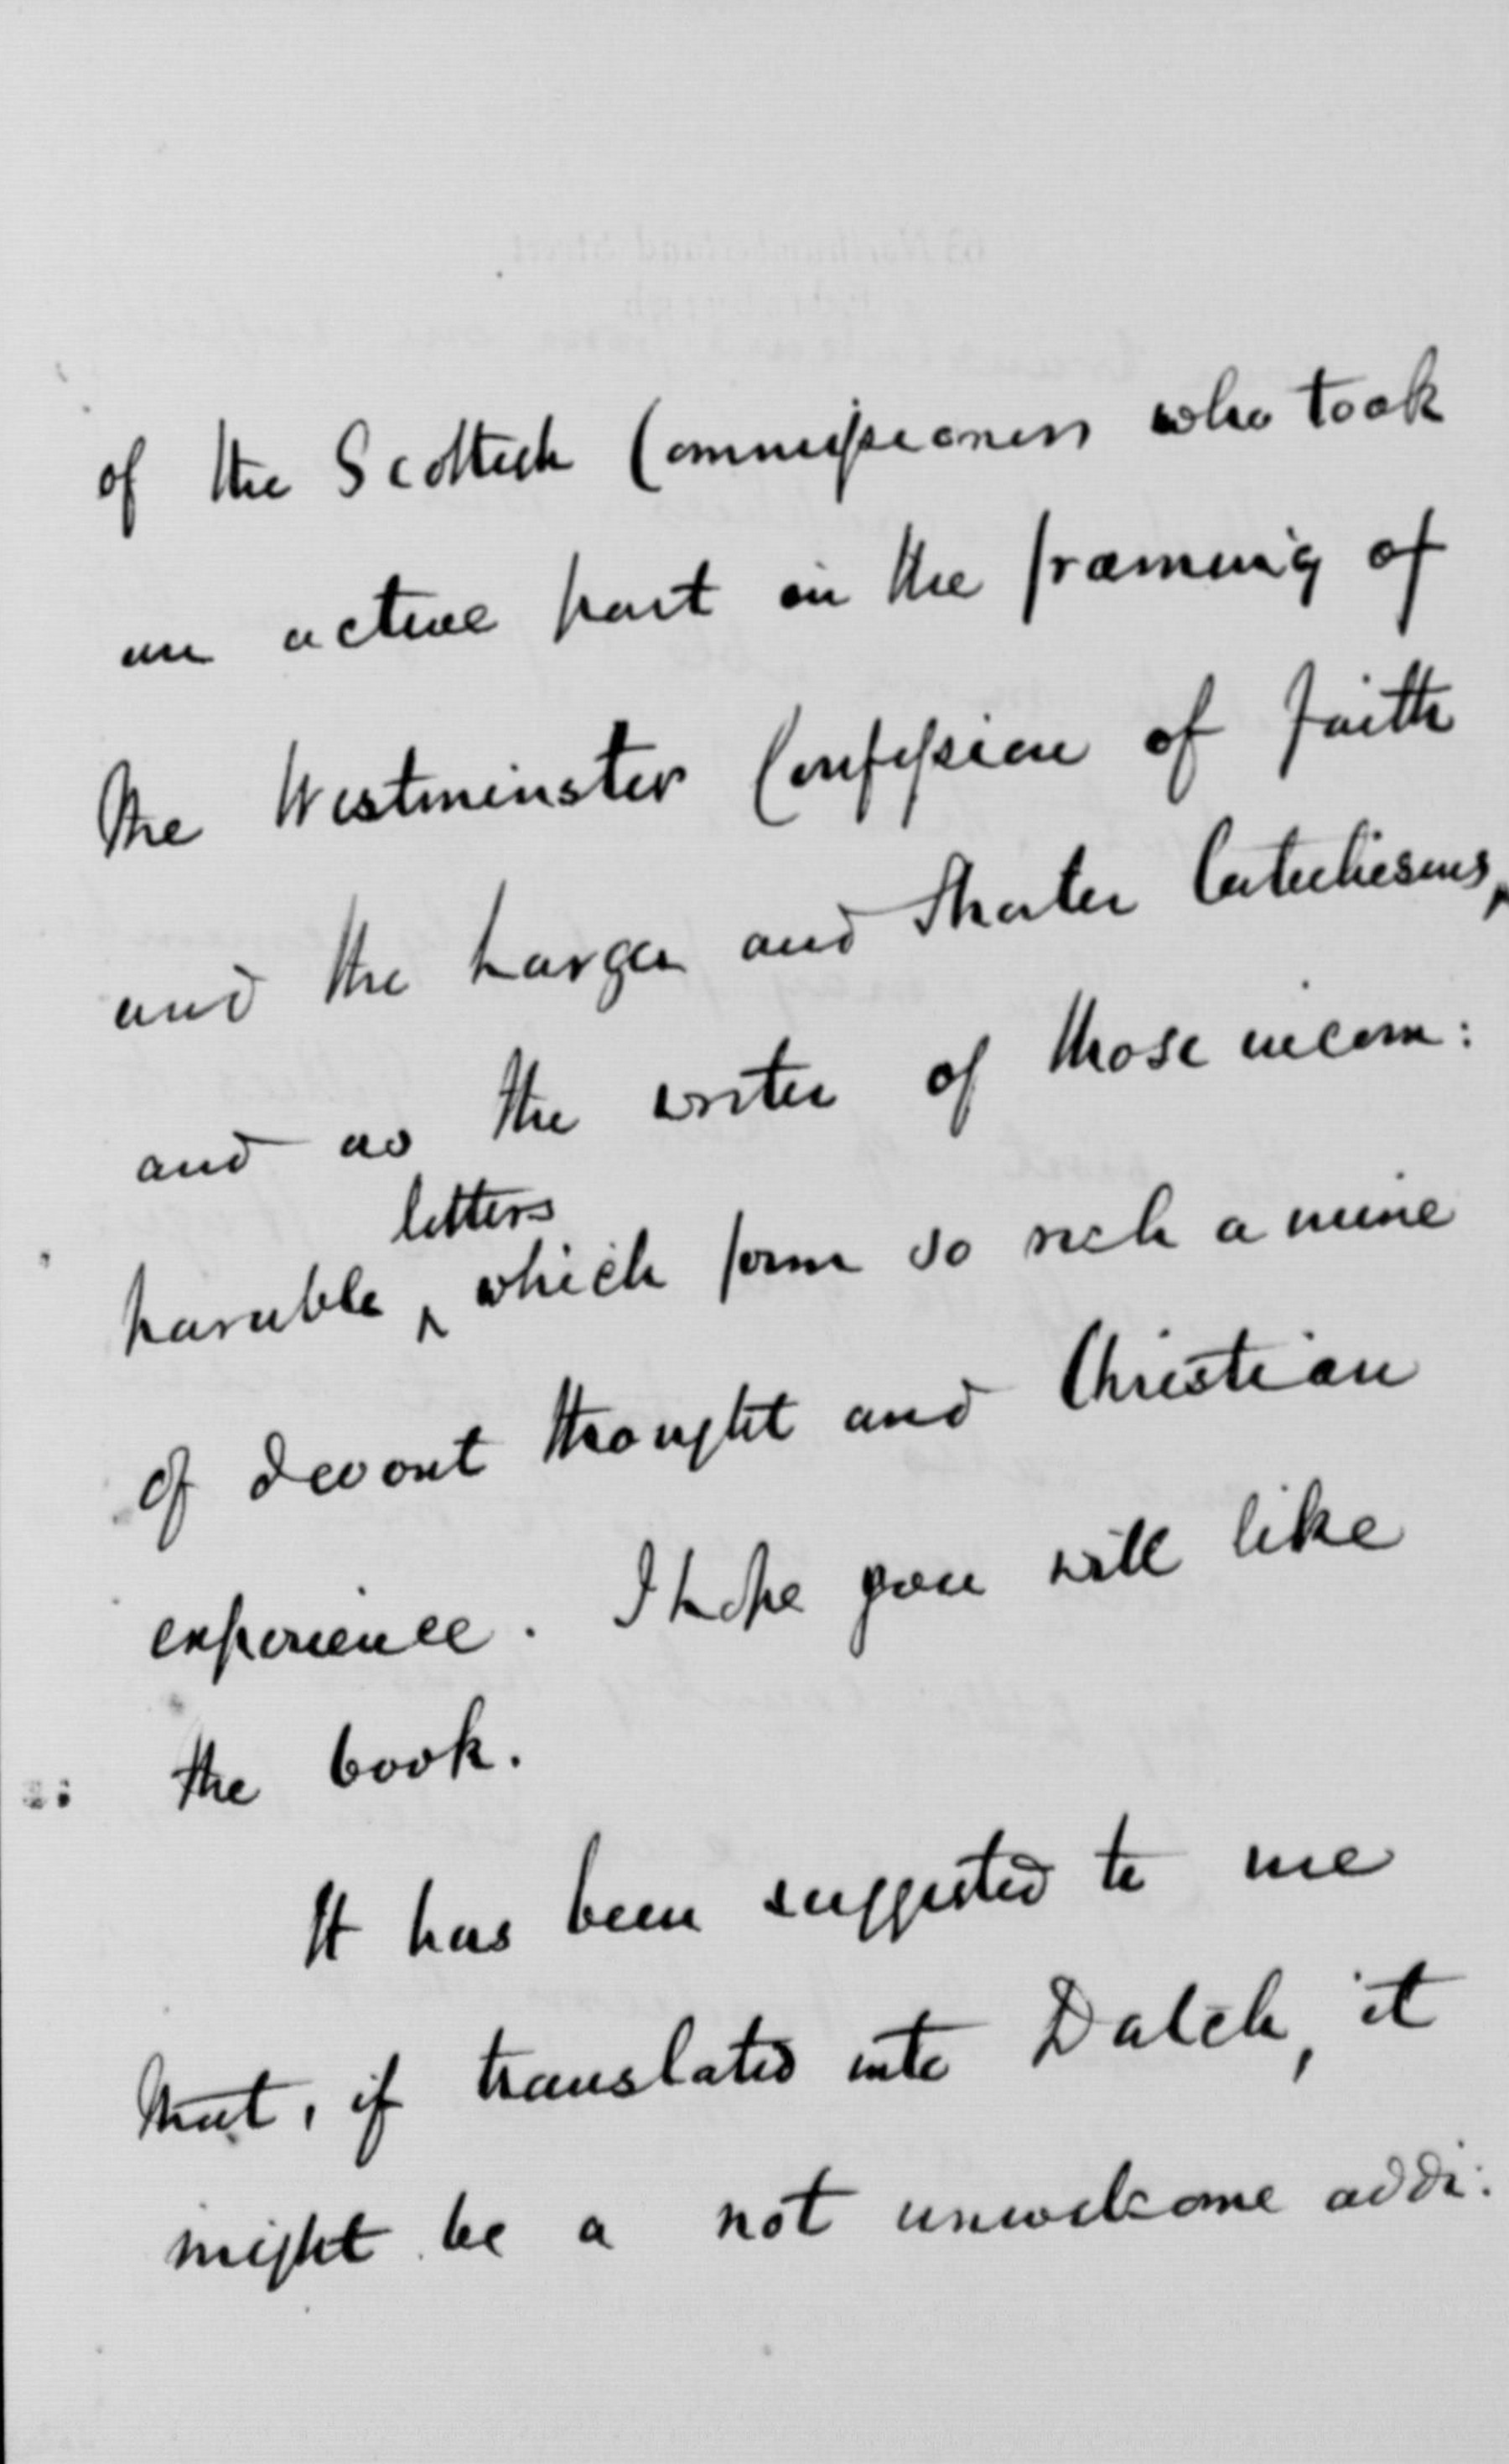 of the Scottish Commissioners who took
an active part in the framing of
the Westminster Confession of Faith
and the Larger and Shorter Catechisms,
and as the writer of those incom:
parable letters which form so rich a mine
of devout thought and Christian
experience. I hope you will like
the book.
It has been suggested to me
that, if translated into Dutch, it
might be a not unwelcome addi: